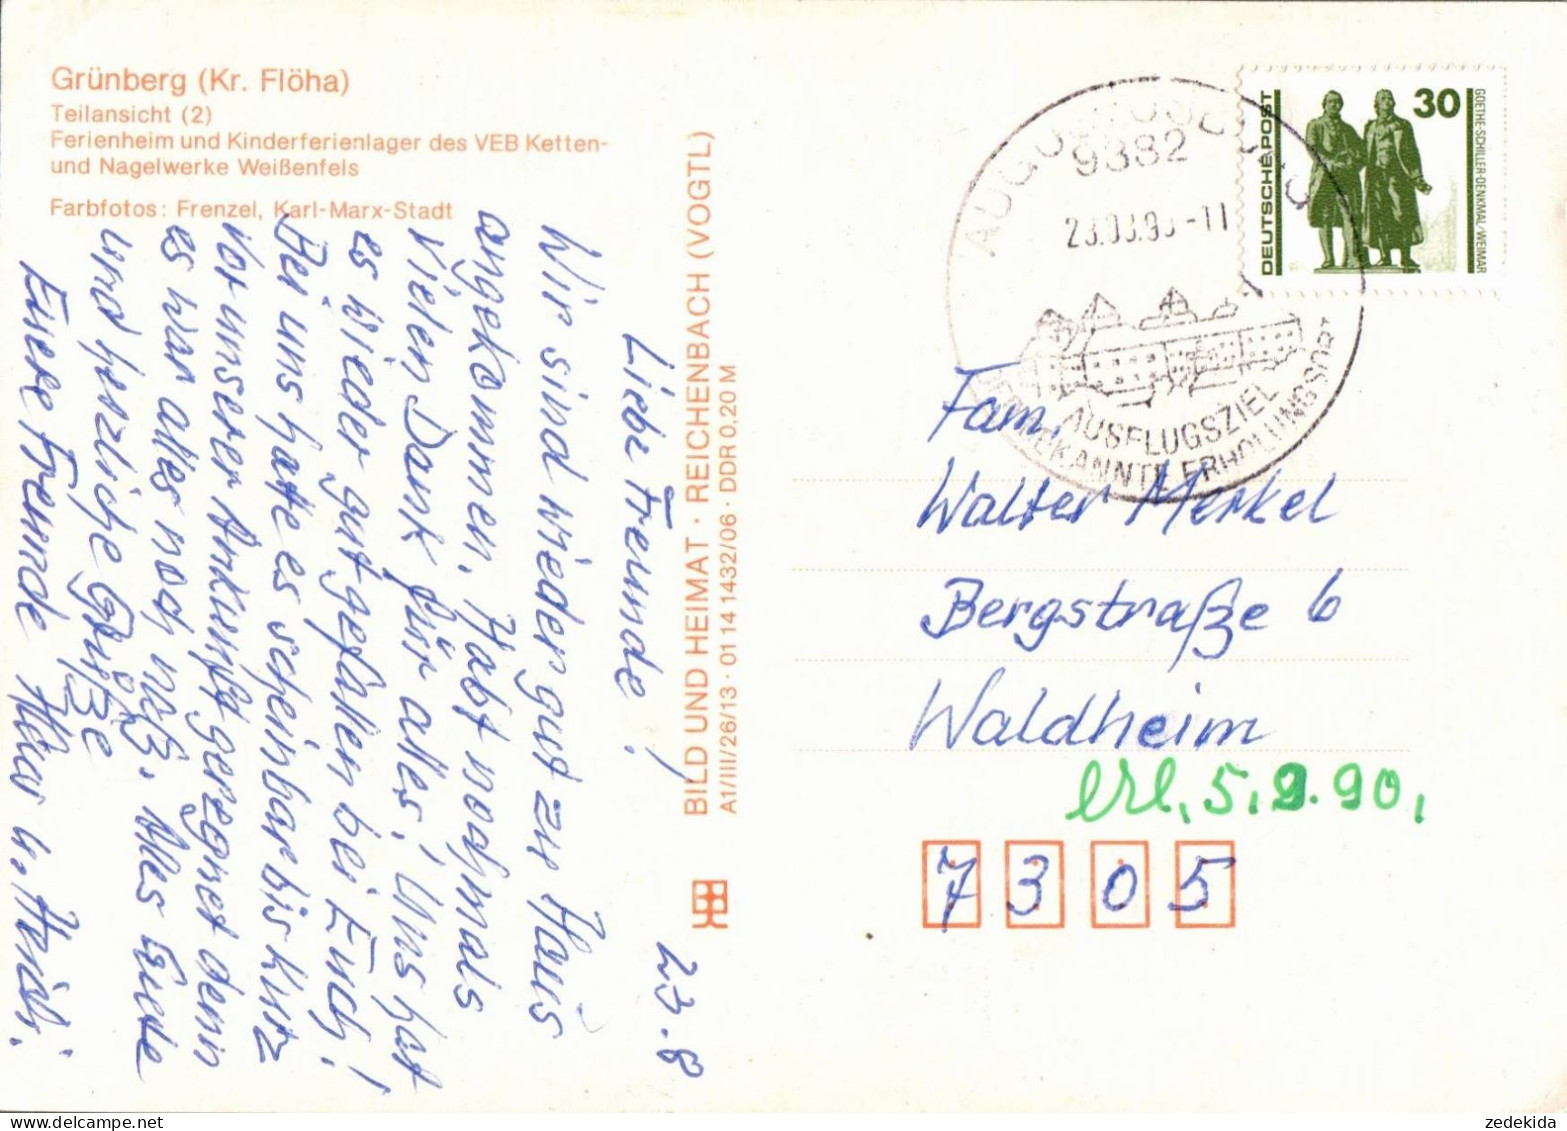 Grünberg (Kr. Flöha)
Teilansicht (2)
Ferienheim und Kinderferienlager des VEB Ketten-
und Nagelwerke Weißenfels
Farbfotos: Frenzel, Karl-Marx-Stadt
23.8
Liebe Freunde!
Wir sind wieder gut zu Haus
angekommen. Habt nochmals
vielen Dank für alles! Uns hat
es wieder gut gefallen bei Euch!
Bei uns hatte es scheinbar bis kurz
vor unserer Ankunft geregnet denn
es war alles noch naß. Alles Gute
und herzliche Grüße
Eure Freunde
BILD UND HEIMAT · REICHENBACH (VOGTL)
A1/III/26/13 · 01 14 1432/06 · DDR 0,20 M
9382
AUSFLUGSZIEL
ERHOLUNGSORT
DEUTSCHE POST
30
GOETHE-SCHILLER-DENKMAL/WEIMAR
Fam.
Walter Merkel
Bergstraße 6
Waldheim
erl. 5.9.90.
7305
zedekida